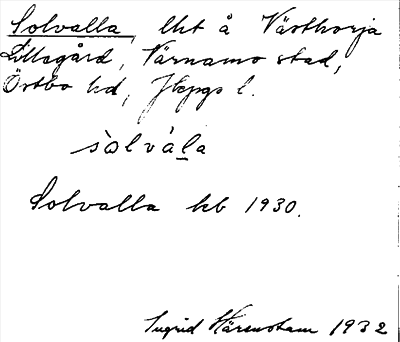 Solvalla, lht å Västhorja
Lillagård, Värnamo stad,
Östbo hd, Jkpgs l.
sòlvála
Solvalla kb 1930.
Ingrid Härenstam 1932